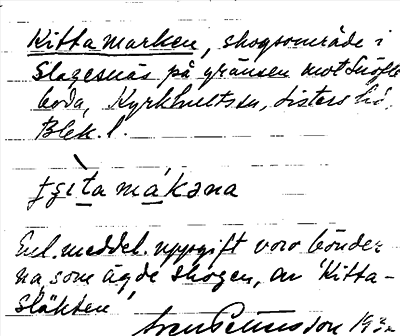 Kitta marken, skogsområde i
Slagesnäs på gränsen mot Snöfle
boda, Kyrkhults sn, Listers hd,
Blek. l.
ƭɕìta mákəna
Enl. meddel. uppgift voro bönder
na, som ägde skogen, av 'Kitta-
släkten'
Sven Petersson 193